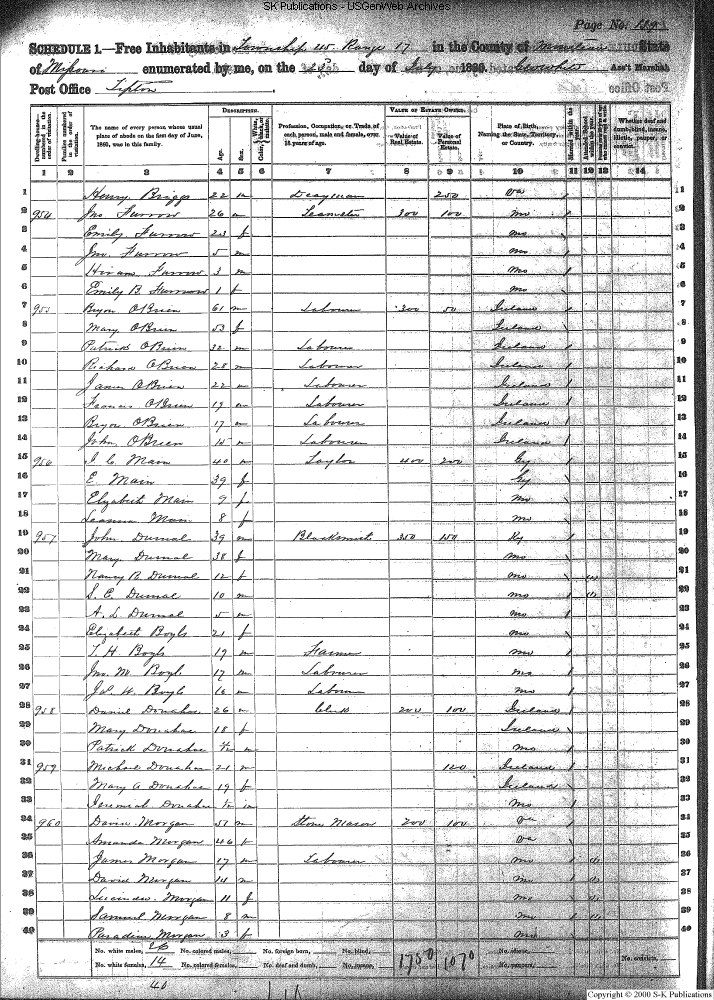 SK Publications - USGenWeb Archives
Page No. 139
SCHEDULE 1.—Free Inhabitants in Township 45 Range 17 in the County of Moniteau State
of Missouri enumerated by me, on the 25 day of July 1860. Ass't Marshal
Post Office Tipton
Dwelling-houses—numbered in the order of visitation.
Families numbered in the order of
The name of every person whose usual place of abode on the first day of June, 1860, was in this family.
DESCRIPTION.
Age.
Sex.
Color, White, black, or mulatto.
Profession, Occupation, or Trade of each person, male and female, over 15 years of age.
VALUE OF ESTATE OWNED.
Value of Real Estate.
Value of Personal Estate.
Place of Birth, Naming the State, Territory, or Country.
Married within the
Attended School
Whether deaf and dumb, blind, insane, idiotic, pauper or convict.
1 2 3 4 5 6 7 8 9 10 11 12 13 14
1 Henry Briggs 22 m Drayman 250 Va 1
2 954 Jno Furrow 26 m Teamster 300 100 Mo 2
3 Emily Furrow 23 f Mo 3
4 Jno. Furrow 5 m Mo 4
5 Hiram Furrow 3 m Mo 5
6 Emily B Furrow 1 f Mo 6
7 955 Bryon OBrien 61 m Labourer 300 50 Ireland 7
8 Mary OBrien 53 f Ireland 8
9 Patrick OBrien 32 m Labourer Ireland 9
10 Richard OBrien 28 m Labourer Ireland 10
11 James OBrien 22 m Labourer Ireland 11
12 Francis OBrien 19 m Labourer Ireland 12
13 Bryon OBrien 17 m Labourer Ireland 13
14 John OBrien 15 m Labourer Ireland 14
15 956 J. C. Main 40 m Taylor 400 200 Ky 15
16 E. Main 39 f Ky 16
17 Elyzabeth Main 9 f Mo 17
18 Main 8 f Mo 18
19 957 John Dumal 39 m Blacksmith 350 150 Ky 19
20 Mary Dumal 38 f Mo 20
21 Nancy B. Dumal 12 f Mo 21
22 S. E. Dumal 10 m Mo 22
23 A. L Dumal 5 m Mo 23
24 Elyzabeth Boyls 21 f Mo 24
25 T. H Boyls 19 m Farmer Mo 25
26 Jno. M. Boyls 17 m Labourer Mo 26
27 H. Boyls 16 m Labourer Mo 27
28 958 Daniel Donahue 26 m Clerk 200 100 Ireland 28
29 Mary Donahue 18 f Ireland 29
30 Patrick Donahue m Mo 30
31 959 Michael Donahue 21 m 120 Ireland 31
32 Mary A Donahue 19 f Ireland 32
33 Jeremiah Donahue m Mo 33
34 960 David Morgan 51 m Stone Mason 200 100 Va 34
35 Amanda Morgan 46 f Va 35
36 James Morgan 17 m Labourer Mo 36
37 David Morgan 14 m Mo 37
38 Lucinda Morgan 11 f Mo 38
39 Samuel Morgan 8 m Mo 39
40 Morgan 3 f Mo 40
No. white males, 26 No. colored males, No. foreign born, No. blind,
No. white females, 14 No. colored females, No. deaf and dumb, No. insane, 1750 1070 No. idiotic, No. paupers, No. convicts,
40
Copyright © 2000 S-K Publications